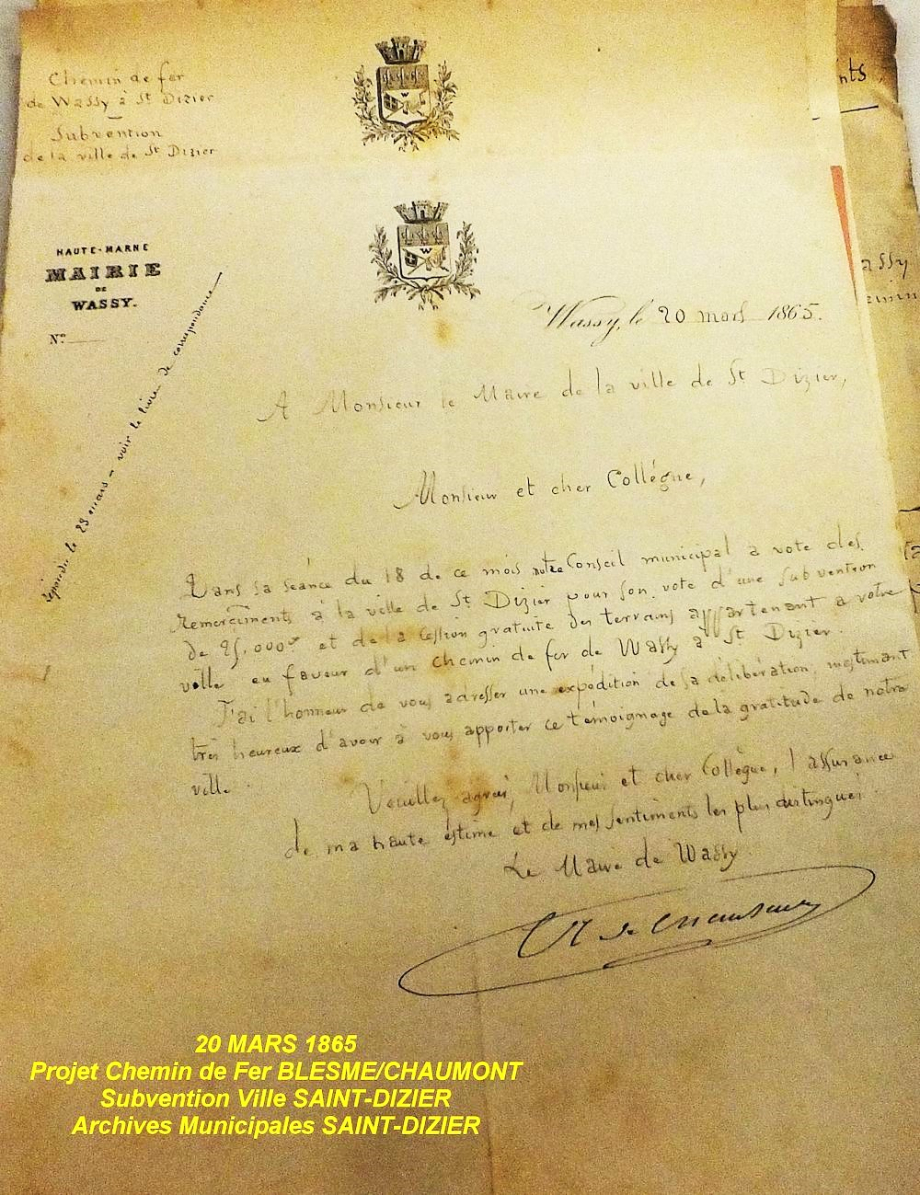 Chemin de fer
de Wassy à St Dizier
Subvention
de la ville de St Dizier
nts
HAUTE-MARNE
MAIRIE
DE
WASSY.
N°
Wassy, le 20 mars 1865.
A Monsieur le Maire de la ville de St Dizier,
répondu le 29 mars - voir le livre de correspondance
Monsieur et cher Collégue,
Dans sa séance du 18 de ce mois notre Conseil municipal a voté des
remerciments à la ville de St Dizier pour son vote d'une subvention
de 25,000f et de la cession gratuite des terrains appartenant à votre
ville en faveur d'un chemin de fer de Wassy à St Dizier.
J'ai l'honneur de vous adresser une expédition de sa délibération, m'estimant
très heureux d'avoir à vous apporter ce témoignage de la gratitude de notre
ville.
Veuillez agréer, Monsieur et cher Collègue, l'assurance
de ma haute éstime et de mes sentiments les plus distingués.
Le Maire de Wassy.
20 MARS 1865
Projet Chemin de Fer BLESME/CHAUMONT
Subvention Ville SAINT-DIZIER
Archives Municipales SAINT-DIZIER